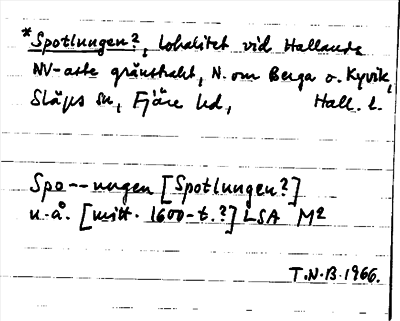 *Spotlungen?, lokalitet vid Hallands
NV-aste gränstrakt, N. om Berga o. Kyvik,
Släps sn, Fjäre hd, Hall. l.
Spo--ungen [Spotlungen?]
u.å. [mitt. 1600-t.?] LSA M2
T.N.B. 1966.